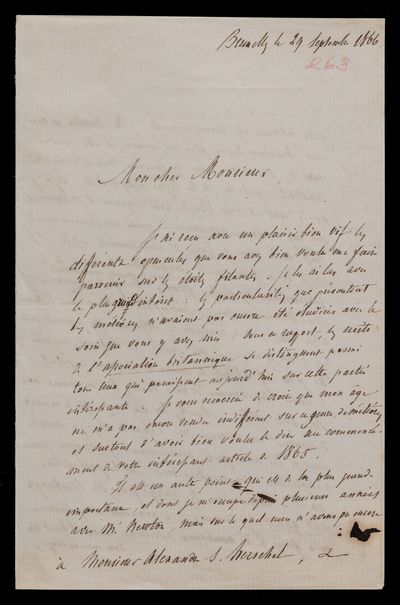 Bruxelles le 29 septembre 1866
263
Mon cher Monsieur,
J'ai reçu avec un plaisir bien vif les
différents opuscules que vous avez bien voulu me faire
parvenir sur les étoiles filantes. Je les ai lus avec
le plus grand intérêt : les particularités que présentent
les météores n'avaient pas encore été étudiées avec le
soin que vous y avez mis. Sous ce rapport, les écrits
de l'association britannique se distinguent parmi
tous ceux qui paraissent aujourd'hui sur cette partie
intéressante. Je vous remercie de croire que mon âge
ne m'a pas encore rendu indifférent sur ce genre de météores
et surtout d'avoir bien voulu le dire au commence-
ment de votre intéressant article de 1865.
Il est un autre point qui est de la plus grande
importance, et dont je m'occupe depuis plusieurs années
avec Mr Newton, mais sur lequel nous n'avons pu encore
à Monsieur Alexandre S. Herschel,